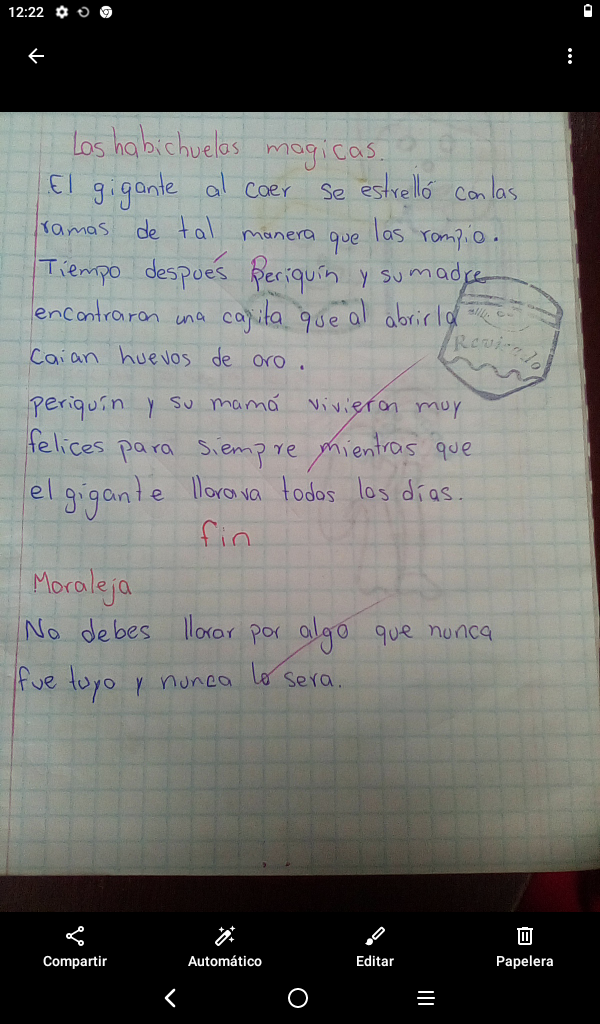 12:22
Las habichuelas magicas.
El gigante al caer se estrelló con las
ramas de tal manera que las rompio.
Tiempo después Periquín y su madre
encontraron una cajita que al abrirla
caian huevos de oro.
Revisado
periquín y su mamá vivieron muy
felices para siempre mientras que
el gigante llorava todos los días.
fin
Moraleja
No debes llorar por algo que nunca
fue tuyo y nunca lo sera.
Compartir
Automático
Editar
Papelera